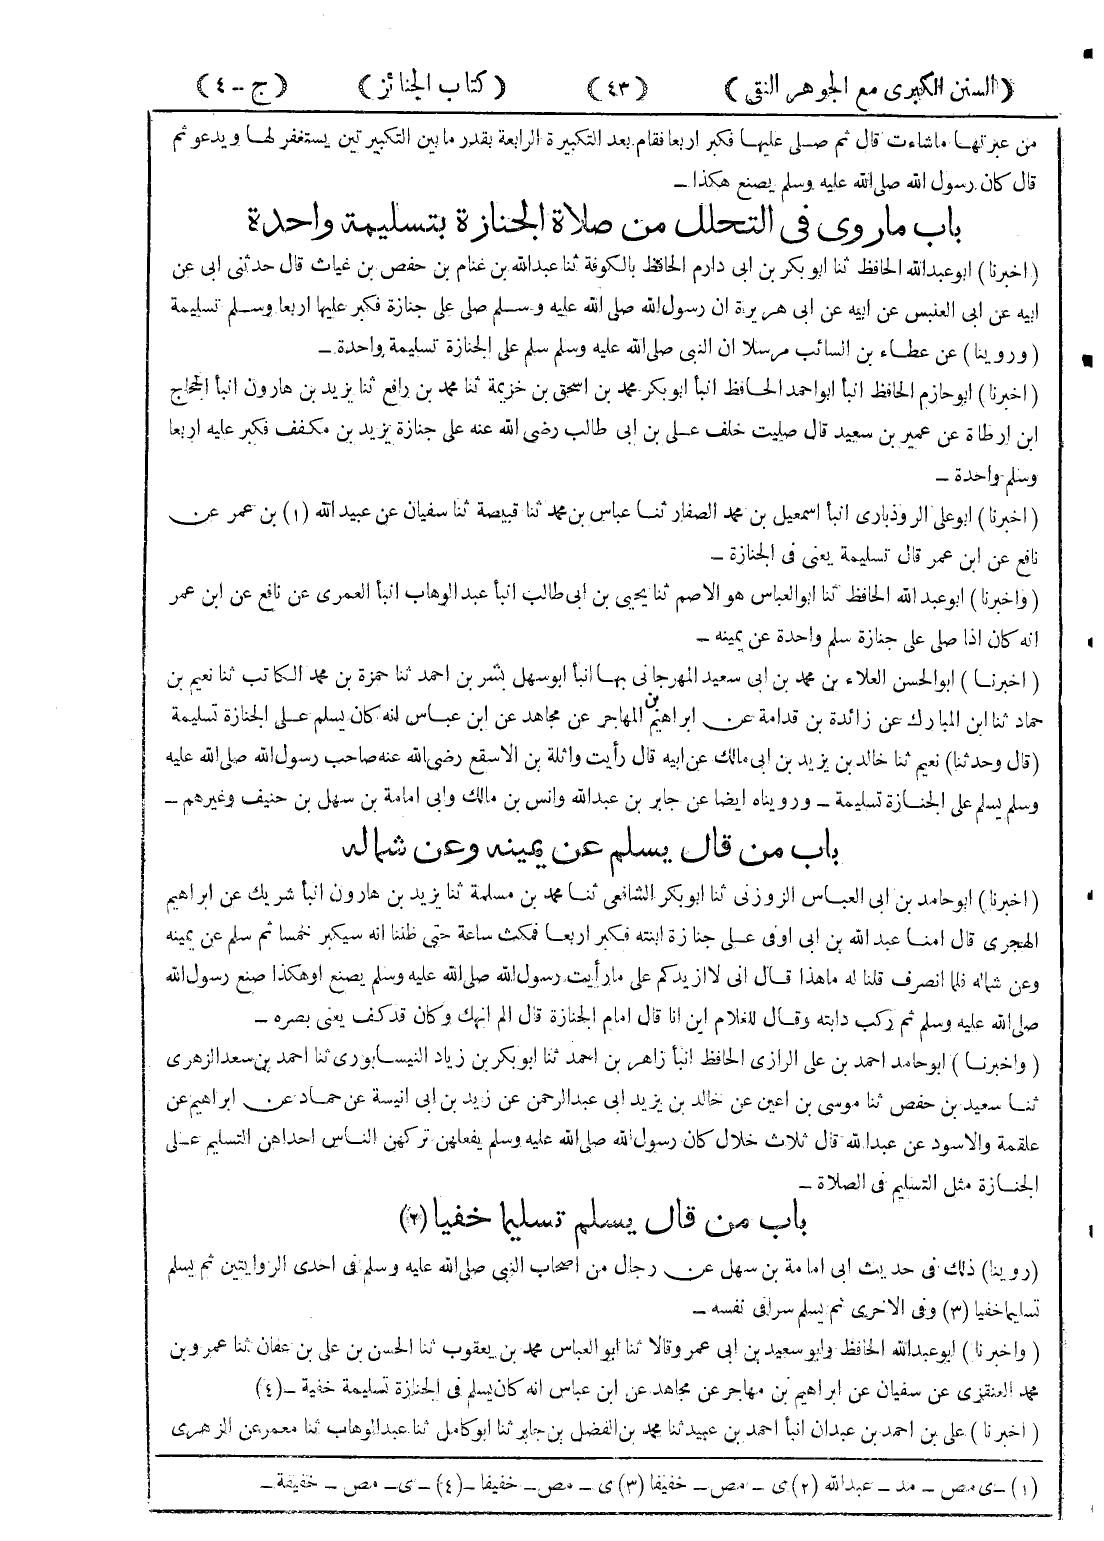 (السنن الكبرى مع الجوهر النقى) (٤٣) (كتاب الجنائز) (ج-٤)
من عبرتها ماشاءت قال ثم صلى عليها فكبر اربعا فقام بعد التكبيرة الرابعة بقدر ما بين التكبيرتين يستغفر لها ويدعو ثم
قال كان رسول الله صلى الله عليه وسلم يصنع هكذا -
باب ماروى فى التحلل من صلاة الجنازة بتسليمة واحدة
(اخبرنا) ابو عبدالله الحافظ ثنا ابو بكر بن ابى دارم الحافظ بالكوفة ثنا عبدالله بن غنام بن حفص بن غياث قال حدثنى ابى عن
ابيه عن ابى العنبس عن ابيه عن ابى هريرة ان رسول الله صلى الله عليه وسلم صلى على جنازة فكبر عليها اربعا وسلم تسليمة
(وروينا) عن عطاء بن السائب مرسلا ان النبى صلى الله عليه وسلم سلم على الجنازة تسليمة واحدة -
(اخبرنا) ابو حازم الحافظ انبأ ابو احمد الحافظ انبأ ابو بكر محمد بن اسحق بن خزيمة ثنا محمد بن رافع ثنا يزيد بن هارون انبأ الحجاج
ابن ارطاة عن عمير بن سعيد قال صليت خلف على بن ابى طالب رضى الله عنه على جنازة يزيد بن مكفف فكبر عليه اربعا
وسلم واحدة -
(اخبرنا) ابو على الروذبارى انبأ اسمعيل بن محمد الصفار ثنا عباس بن محمد ثنا قبيصة ثنا سفيان عن عبيد الله (١) بن عمر عن
نافع عن ابن عمر قال تسليمة يعنى فى الجنازة -
(واخبرنا) ابو عبد الله الحافظ ثنا ابو العباس هو الاصم ثنا يحيى بن ابى طالب انبأ عبد الوهاب انبأ العمرى عن نافع عن ابن عمر
انه كان اذا صلى على جنازة سلم واحدة عن يمينه -
(اخبرنا) ابو الحسن العلاء بن محمد بن ابى سعيد المهرجانى بها انبأ ابو سهل بشر بن احمد ثنا حمزة بن محمد الكاتب ثنا نعيم بن
حماد ثنا ابن المبارك عن زائدة بن قدامة عن ابراهيم بن المهاجر عن مجاهد عن ابن عباس انه كان يسلم على الجنازة تسليمة
(قال وحدثنا) نعيم ثنا خالد بن يزيد بن ابى مالك عن ابيه قال رأيت واثلة بن الاسقع رضى الله عنه صاحب رسول الله صلى الله عليه
وسلم يسلم على الجنازة تسليمة - ورويناه ايضا عن جابر بن عبدالله وانس بن مالك وابى امامة بن سهل بن حنيف وغيرهم -
باب من قال يسلم عن يمينه وعن شماله
(اخبرنا) ابو حامد بن ابى العباس الزوزنى ثنا ابو بكر الشافعى ثنا محمد بن مسلمة ثنا يزيد بن هارون انبأ شريك عن ابراهيم
الهجرى قال امنا عبد الله بن ابى اوفى على جنازة ابنته فكبر اربعا فمكث ساعة حتى ظننا انه سيكبر خمسا ثم سلم عن يمينه
وعن شماله فلما انصرف قلنا له ماهذا قال انى لا ازيدكم على ما رأيت رسول الله صلى الله عليه وسلم يصنع او هكذا صنع رسول الله
صلى الله عليه وسلم ثم ركب دابته وقال للغلام اين انا قال امام الجنازة قال الم انهك وكان قد كف يعنى بصره -
(واخبرنا) ابو حامد احمد بن على الرازى الحافظ انبأ زاهر بن احمد ثنا ابو بكر بن زياد النيسابورى ثنا احمد بن سعد الزهرى
ثنا سعيد بن حفص ثنا موسى بن اعين عن خالد بن يزيد ابى عبدالرحمن عن زيد بن ابى انيسة عن حماد عن ابراهيم عن
علقمة والاسود عن عبدالله قال ثلاث خلال كان رسول الله صلى الله عليه وسلم يفعلهن تركهن الناس احداهن التسليم على
الجنازة مثل التسليم فى الصلاة -
باب من قال يسلم تسليما خفيا (٢)
(روينا) ذلك فى حديث ابى امامة بن سهل عن رجال من اصحاب النبى صلى الله عليه وسلم فى احدى الروايتين ثم يسلم
تسليما خفيا (٣) وفى الاخرى ثم يسلم سرا فى نفسه -
(واخبرنا) ابو عبدالله الحافظ وابو سعيد بن ابى عمرو قالا ثنا ابو العباس محمد بن يعقوب ثنا الحسن بن على بن عفان ثنا عمرو بن
محمد العنقزى عن سفيان عن ابراهيم بن مهاجر عن مجاهد عن ابن عباس انه كان يسلم فى الجنازة تسليمة خفية -(٤)
(اخبرنا) على بن احمد بن عبدان انبأ احمد بن عبيد ثنا محمد بن الفضل بن جابر ثنا ابو كامل ثنا عبدالوهاب ثنا معمر عن الزهرى
(١) -ى مص - مد - عبدالله (٢) ى - مص - خفيفا (٣) ى - مص - خفيفا -(٤) -ى- مص - خفيفة -